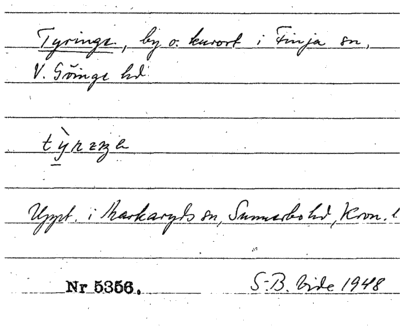 Tyringe, by o. kurort i Finja sn,
V. Göinge hd
Uppt. i Markaryds sn, Sunnerbo hd, Kron. l
Nr 5356. S-B. Vide 1948